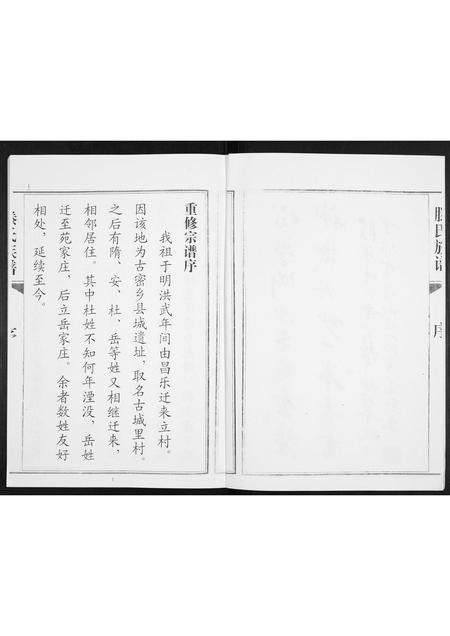 滕氏族谱
序
重修宗谱序
我祖于明洪武年间由昌乐迁来立村。
因该地为古密乡县城遗址，取名古城里村。
之后有隋、安、杜、岳等姓又相继迁来，
相邻居住。其中杜姓不知何年湮没，岳姓
迁至苑家庄，后立岳家庄。余者数姓友好
相处，延续至今。
滕氏族谱
序